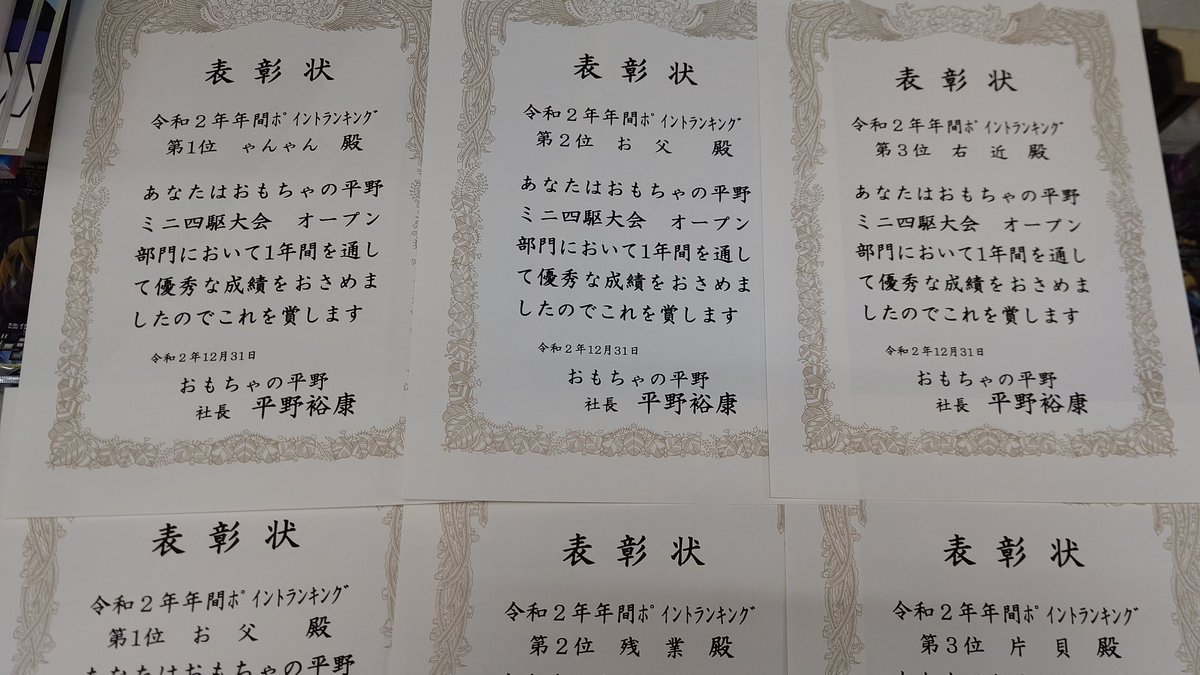 表彰状
令和２年年間ﾎﾟｲﾝﾄﾗﾝｷﾝｸﾞ
第1位 ゃんゃん 殿
あなたはおもちゃの平野
ミニ四駆大会　オープン
部門において1年間を通し
て優秀な成績をおさめま
したのでこれを賞します
令和２年12月31日
おもちゃの平野
社長 平野裕康
表彰状
令和２年年間ﾎﾟｲﾝﾄﾗﾝｷﾝｸﾞ
第２位 お父 殿
あなたはおもちゃの平野
ミニ四駆大会　オープン
部門において1年間を通し
て優秀な成績をおさめま
したのでこれを賞します
令和２年12月31日
おもちゃの平野
社長 平野裕康
表彰状
令和２年年間ﾎﾟｲﾝﾄﾗﾝｷﾝｸﾞ
第３位 右近 殿
あなたはおもちゃの平野
ミニ四駆大会　オープン
部門において1年間を通し
て優秀な成績をおさめま
したのでこれを賞します
令和２年12月31日
おもちゃの平野
社長 平野裕康
表彰状
令和２年年間ﾎﾟｲﾝﾄﾗﾝｷﾝｸﾞ
第1位 お父 殿
あなたはおもちゃの平野
表彰状
令和２年年間ﾎﾟｲﾝﾄﾗﾝｷﾝｸﾞ
第２位 残業 殿
表彰状
令和２年年間ﾎﾟｲﾝﾄﾗﾝｷﾝｸﾞ
第３位 片貝 殿